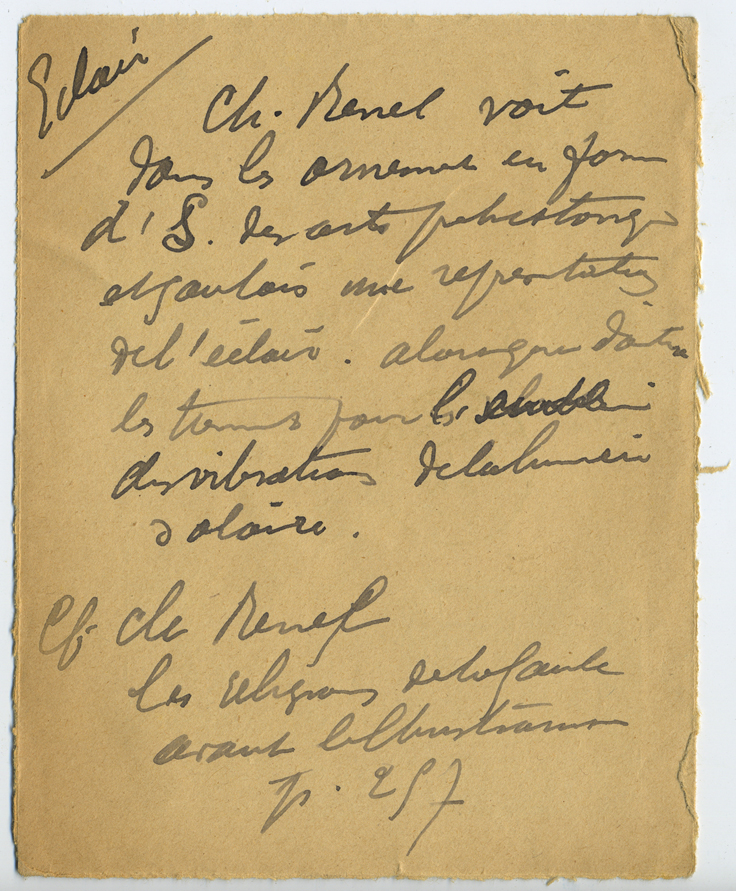 Eclair
Ch. Renel voit
dans les ornements en forme
d'S. des arts préhistoriques
et gaulois une représentation
de l'éclair. alors que d'autres
les tiennent pour le symbole
des vibrations de la lumière
solaire.
Cf. Ch Renel
Les religions de la Gaule
avant le Christianisme
p. 257